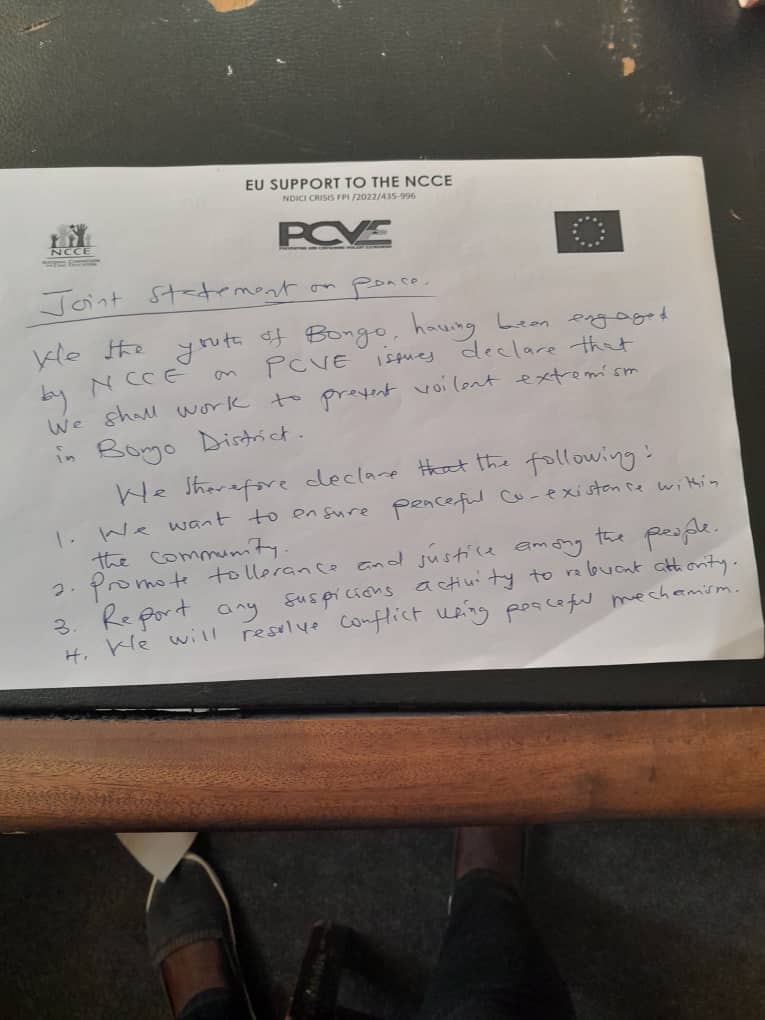 EU SUPPORT TO THE NCCE
NDICI CRISIS FPI /2022/435-996
NCCE
NATIONAL COMMISSION
FOR CIVIC EDUCATION
PCVE
PREVENTING AND CONTAINING VIOLENT EXTREMISM
Joint Statement on peace.
We the youth of Bongo, having been engaged
by NCCE on PCVE issues declare that
We shall work to prevent voilent extremism
in Bongo District.
We therefore declare that the following:
1. We want to ensure peaceful co-existence within
the community.
2. Promote tollerance and justice among the people.
3. Report any suspicious activity to relevant
4. We will resolve conflict using peaceful mechanism.